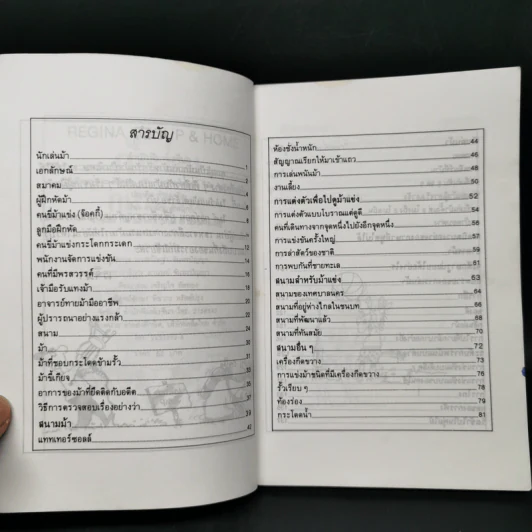 สารบัญ
นักเล่นม้า 1
เอกลักษณ์ 2
สมาคม 4
ผู้ฝึกหัดม้า 6
คนขี่ม้าแข่ง (จ๊อคกี้) 8
ลูกมือฝึกหัด
คนขี่ม้าแข่งกระโดกกระเดก 12
พนักงานจัดการแข่งขัน 14
คนที่มีพรสวรรค์
เจ้ามือรับแทงม้า
อาจารย์ทายม้ามืออาชีพ
ผู้ปรารถนาอย่างแรงกล้า
สนาม
ม้า
ม้าที่ชอบกระโดดข้ามรั้ว
ม้าขี้เกียจ
อาการของม้าที่ยึดติดกับอดีต
วิธีการตรวจสอบเรื่องอย่างว่า
สนามม้า 39
แททเทอร์ซอลล์ 42
ห้องชั่งน้ำหนัก 44
สัญญาณเรียกให้มาเข้าแถว 46
การเล่นพนันม้า 48
งานเลี้ยง 50
การแต่งตัวเพื่อไปดูม้าแข่ง 52
การแต่งตัวแบบโบราณแต่ดูดี 54
คนที่เดินทางจากจุดหนึ่งไปยังอีกจุดหนึ่ง 56
การแข่งขันครั้งใหญ่ 57
การล่าสัตว์ของชาติ 59
การพบกันที่ชายทะเล 61
สนามสำหรับม้าแข่ง 63
สนามของเทศบาลนคร 64
สนามที่อยู่ห่างไกลในชนบท 66
สนามที่พัฒนาแล้ว 68
สนามที่ทันสมัย 70
สนามอื่น ๆ 72
เครื่องกีดขวาง 74
การแข่งม้าชนิดที่มีเครื่องกีดขวาง 76
รั้วเรียบ ๆ 78
ท้องร่อง 79
กระโดดน้ำ 81